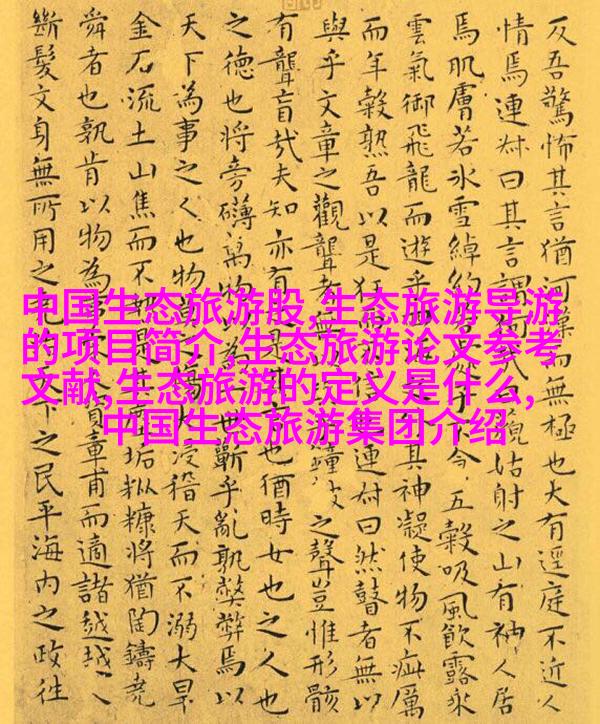 反吾驚怖其言猶河漢而無極也大有逕庭不近人
情焉連叔曰其言謂何哉曰藐姑射之山有神人居
焉肌膚若冰雪綽約 五穀吸風飲露乘
雲氣御飛龍而遊乎 其神凝使物不疵厲
而年穀熟吾以是狂 信 連叔曰然瞽者無以
與乎文章之觀聾者無 之聲豈惟形骸
有聾盲哉夫知亦有 也猶時女也之人也
之德也將旁礴萬物以為 世蘄乎亂孰弊弊焉以
天下為事之人也物莫 傷大浸稽天而不溺大旱
金石流土山焦而不 是其 垢粃糠將猶陶鑄堯
舜者也孰肯以物為事 人資章甫而適諸越越
斷髮文身無所用之 天下之民平海内之政往
中国生态旅游股,生态旅游导游
的项目简介,生态旅游论文参考
文献,生态旅游的定义是什么,
中国生态旅游集团介绍